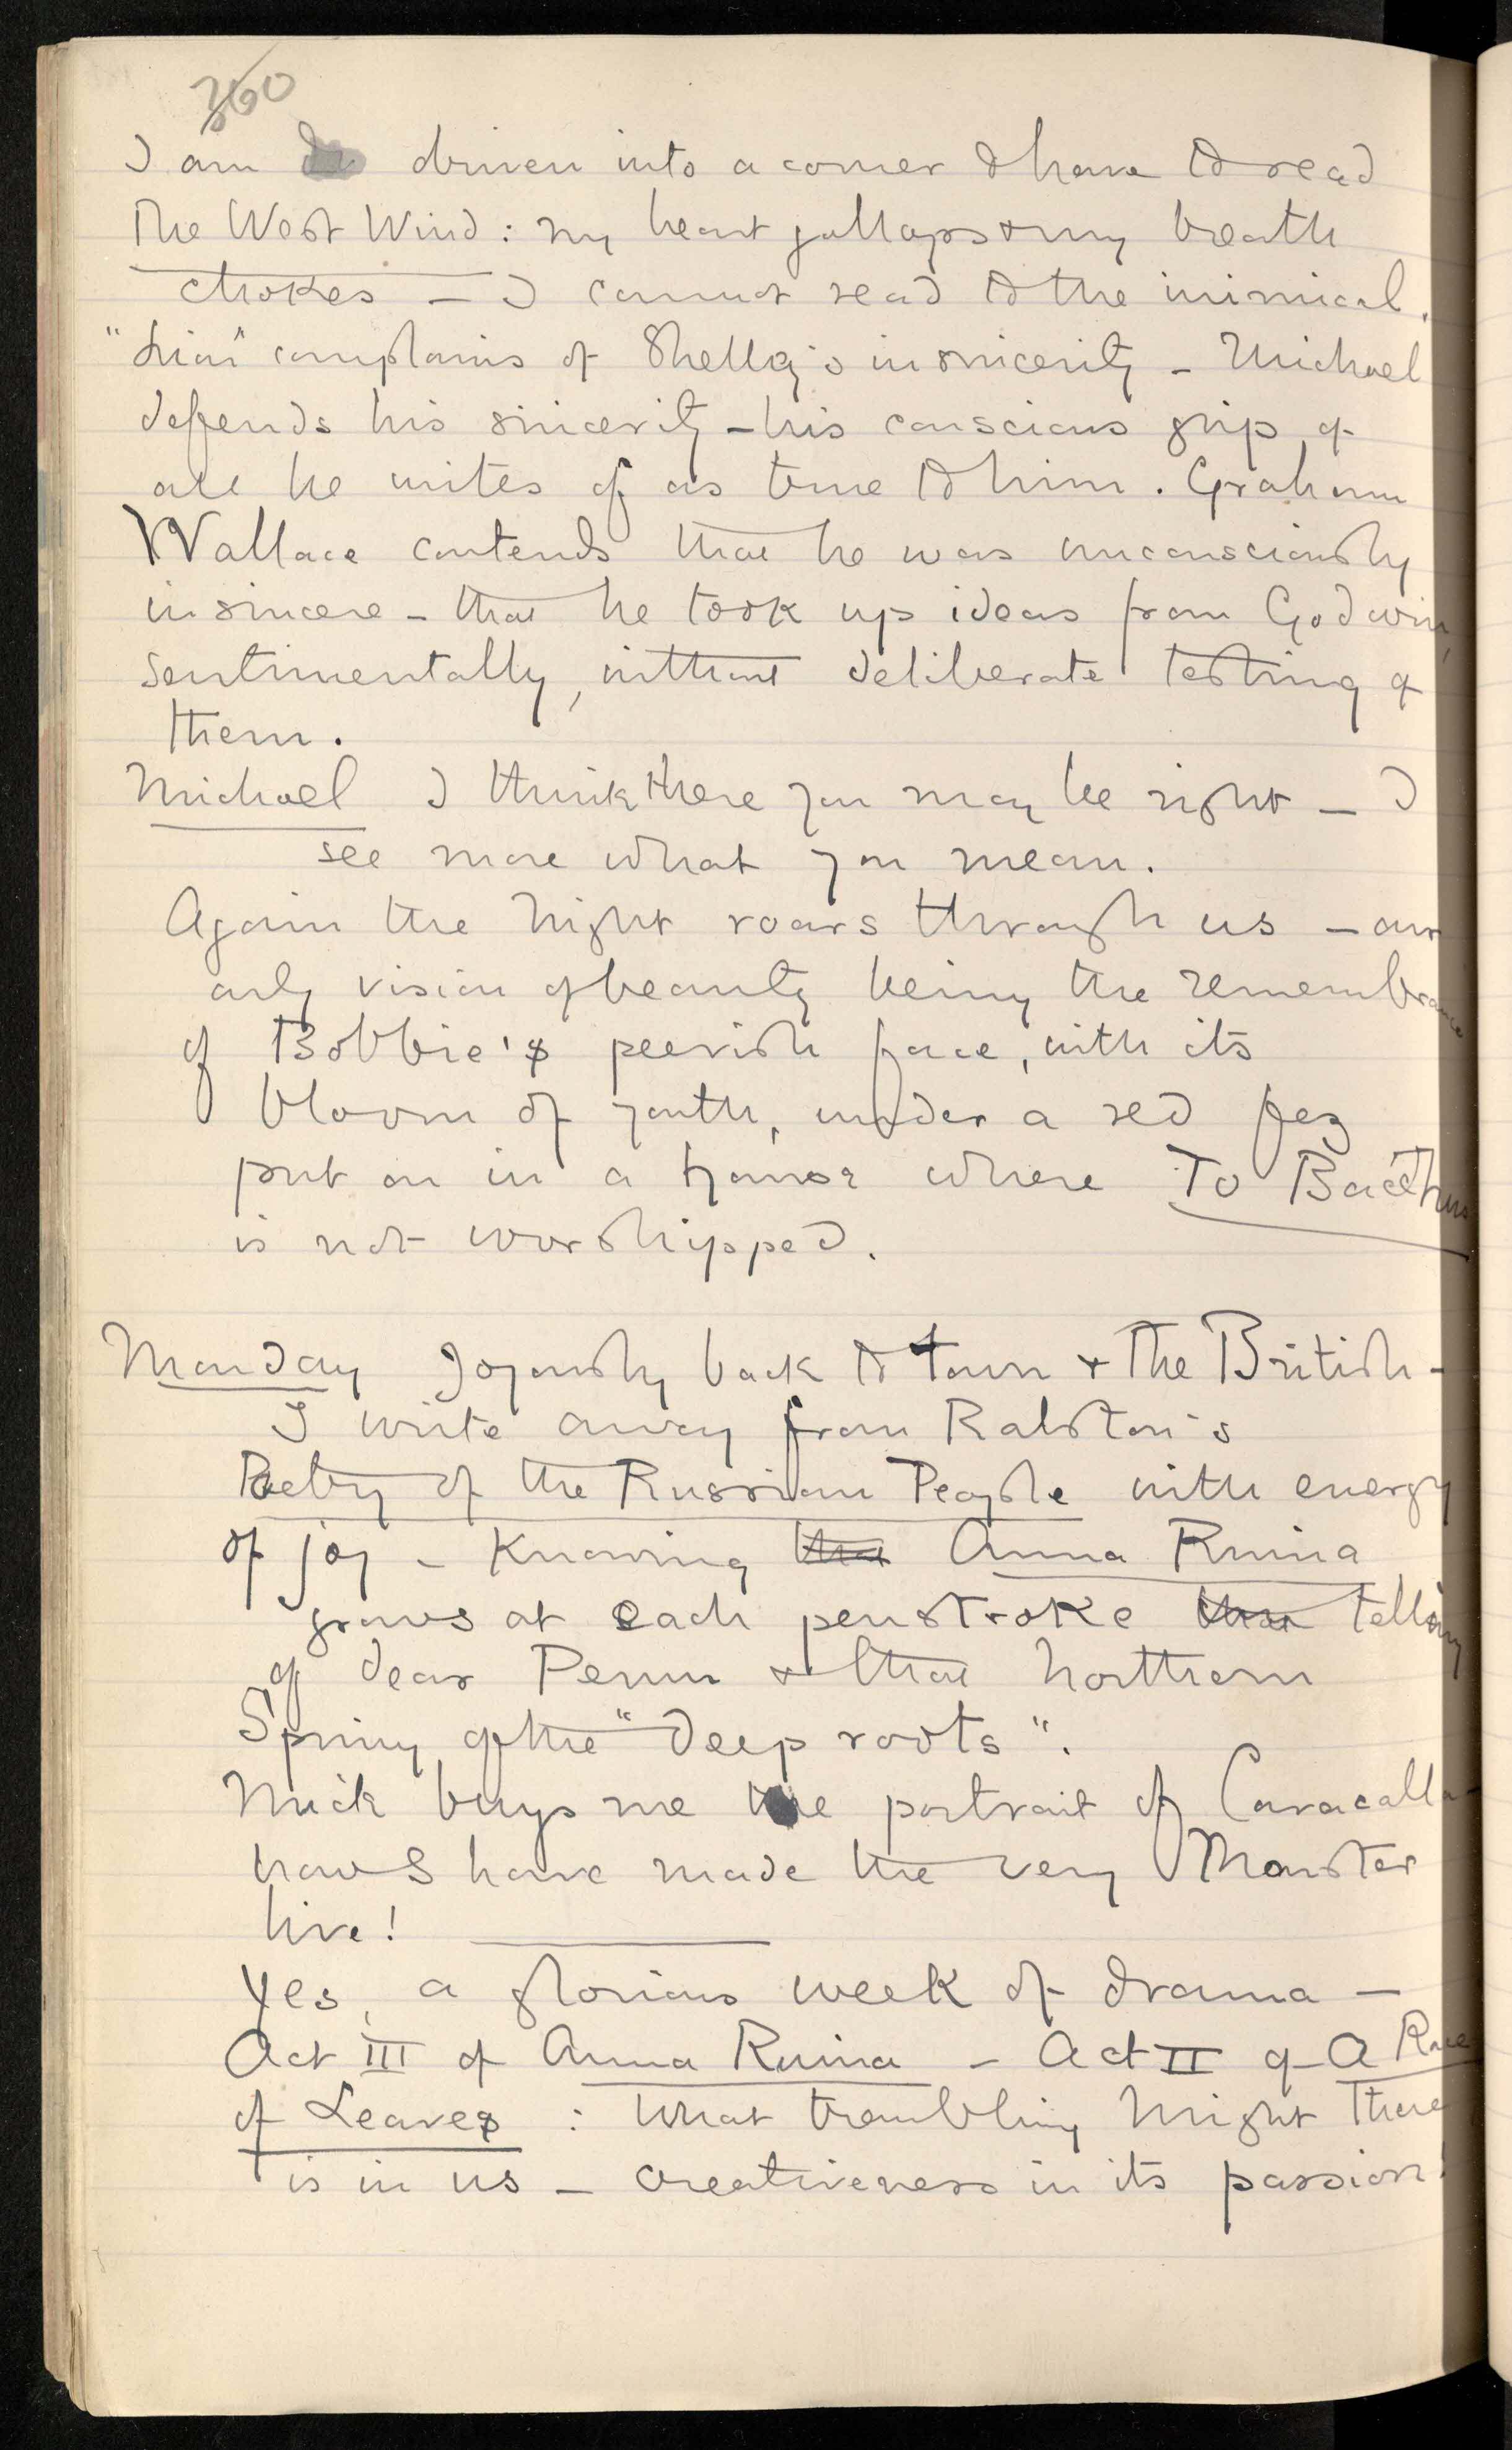 360
I am driven into a corner & have to read
The West Wind: my heart gallops & my breath
chokes – I cannot read to the inimical.
"Lion" complains of Shelley's insincerity – Michael
defends his sincerity – his conscious grip of
all he writes of as true to him. Graham
Wallace contends that he was unconsciously
insincere – that he took up ideas from Godwin,
sentimentally, without deliberate testing of
them.
Michael I think there you may be right – I
see more what you mean.
Again the night roars through us – our
only vision of beauty being the remembrance
of Bobbie's peevish face, with its
bloom of youth, under a red fez
put on in a house where To Bacchus
is not worshipped.
Monday Joyously back to town & The British –
I write away from Ralston's
Poetry of the Russian People with energy
of joy – knowing that Anna Ruina
grows at each penstroke telling
of dear Perun & that Northern
Spring of the "deep roots".
Mick buys me the portrait of Caracalla –
how S have made the very Monster
live!
Yes, a glorious week of drama –
Act III of Anna Ruina – Act II of A Race
of Leaves : What trembling might there
is in us – creativeness in its passion!